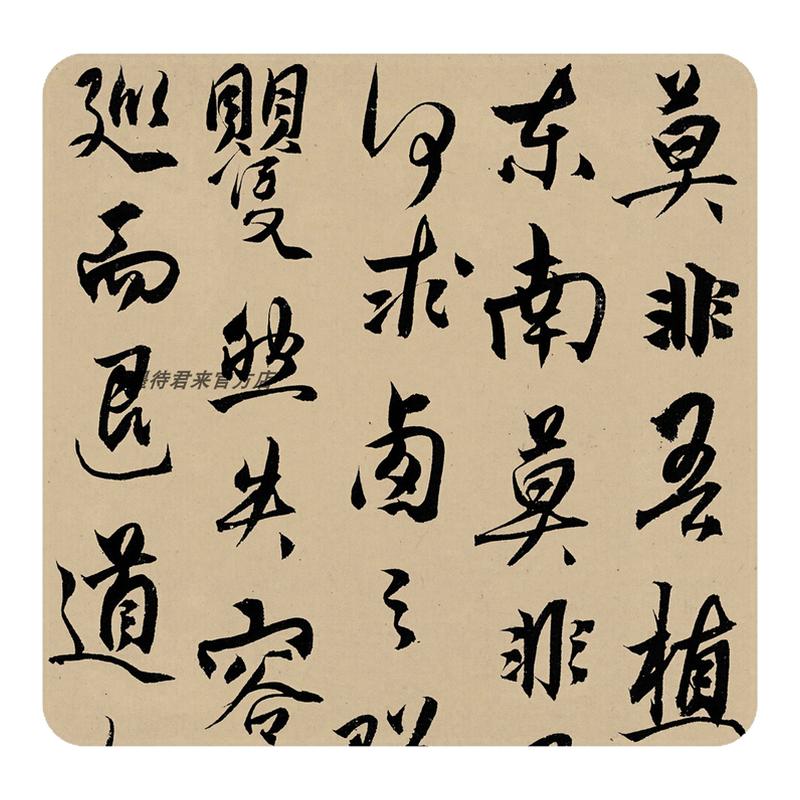 莫非吾植
东南莫非
何求鹵之
矍然失容
廵而退道
待君来官方店